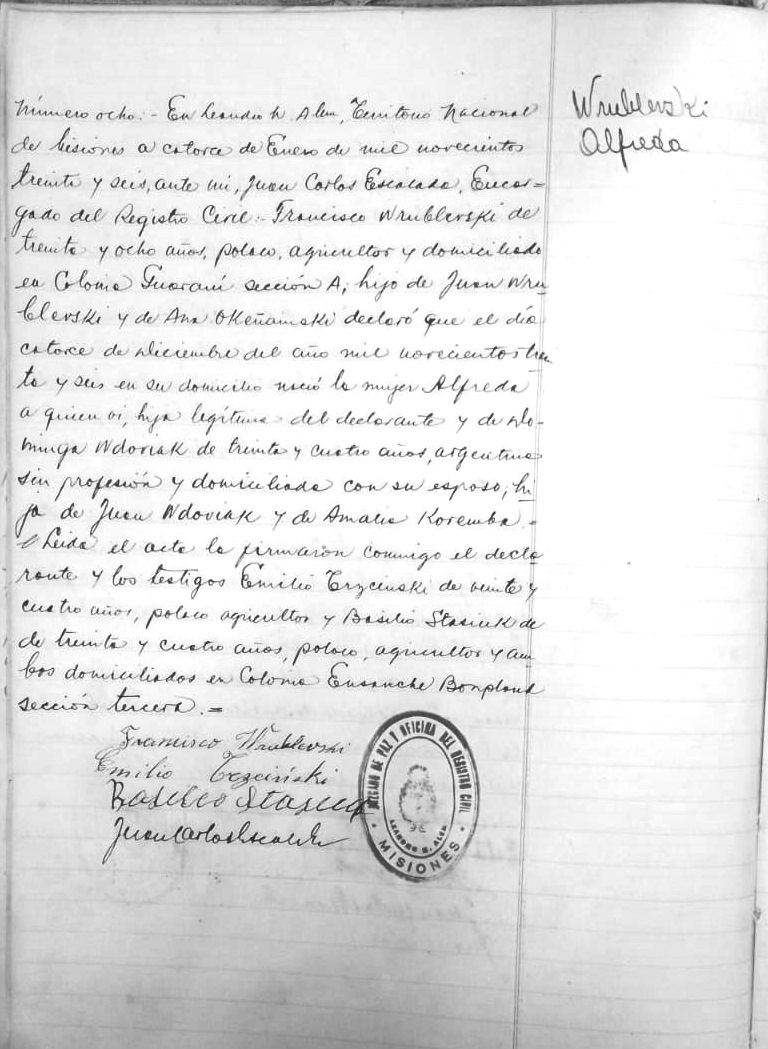 Número ocho:- En Leandro N. Alem, Territorio Nacional
de Misiones a catorce de Enero de mil novecientos
treinta y seis, ante mi, Juan Carlos Escalada, Encar=
gado del Registro Civil:- Francisco Wrublevski de
treinta y ocho años, polaco, agricultor y domiciliado
en Colonia Guaraní sección A, hijo de Juan Wru
blevski y de Ana Okeñamski declaró que el día
catorce de Diciembre del año mil novecientos trein
ta y seis en su domicilio nació la mujer Alfreda
a quien vi, hija legítima del declarante y de Do-
minga Wdoviak de treinta y cuatro años, argentina
sin profesión y domiciliada con su esposo, hi
ja de Juan Wdoviak y de Amalia Koremba.=
Leida el acta la firmaron conmigo el decla
rante y los testigos Emilio Trzcinski de veinte y
cuatro años, polaco agricultor y Basilio Stasiuk de
de treinta y cuatro años, polaco, agricultor y am
bos domiciliados en Colonia Ensanche Bonpland
sección tercera.=
Francisco Wrublevski
Emilio Trzciński
Juan Carlos Escalada
Wrublevski
Alfreda
JUZGADO DE PAZ Y OFICINA DEL REGISTRO CIVIL
LEANDRO N. ALEM
MISIONES